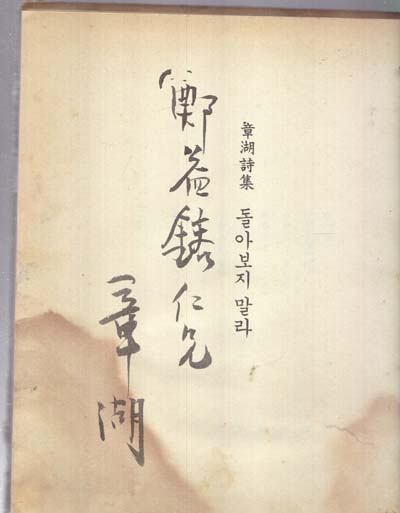 章湖詩集 돌아보지 말라
鄭益 仁兄
章湖